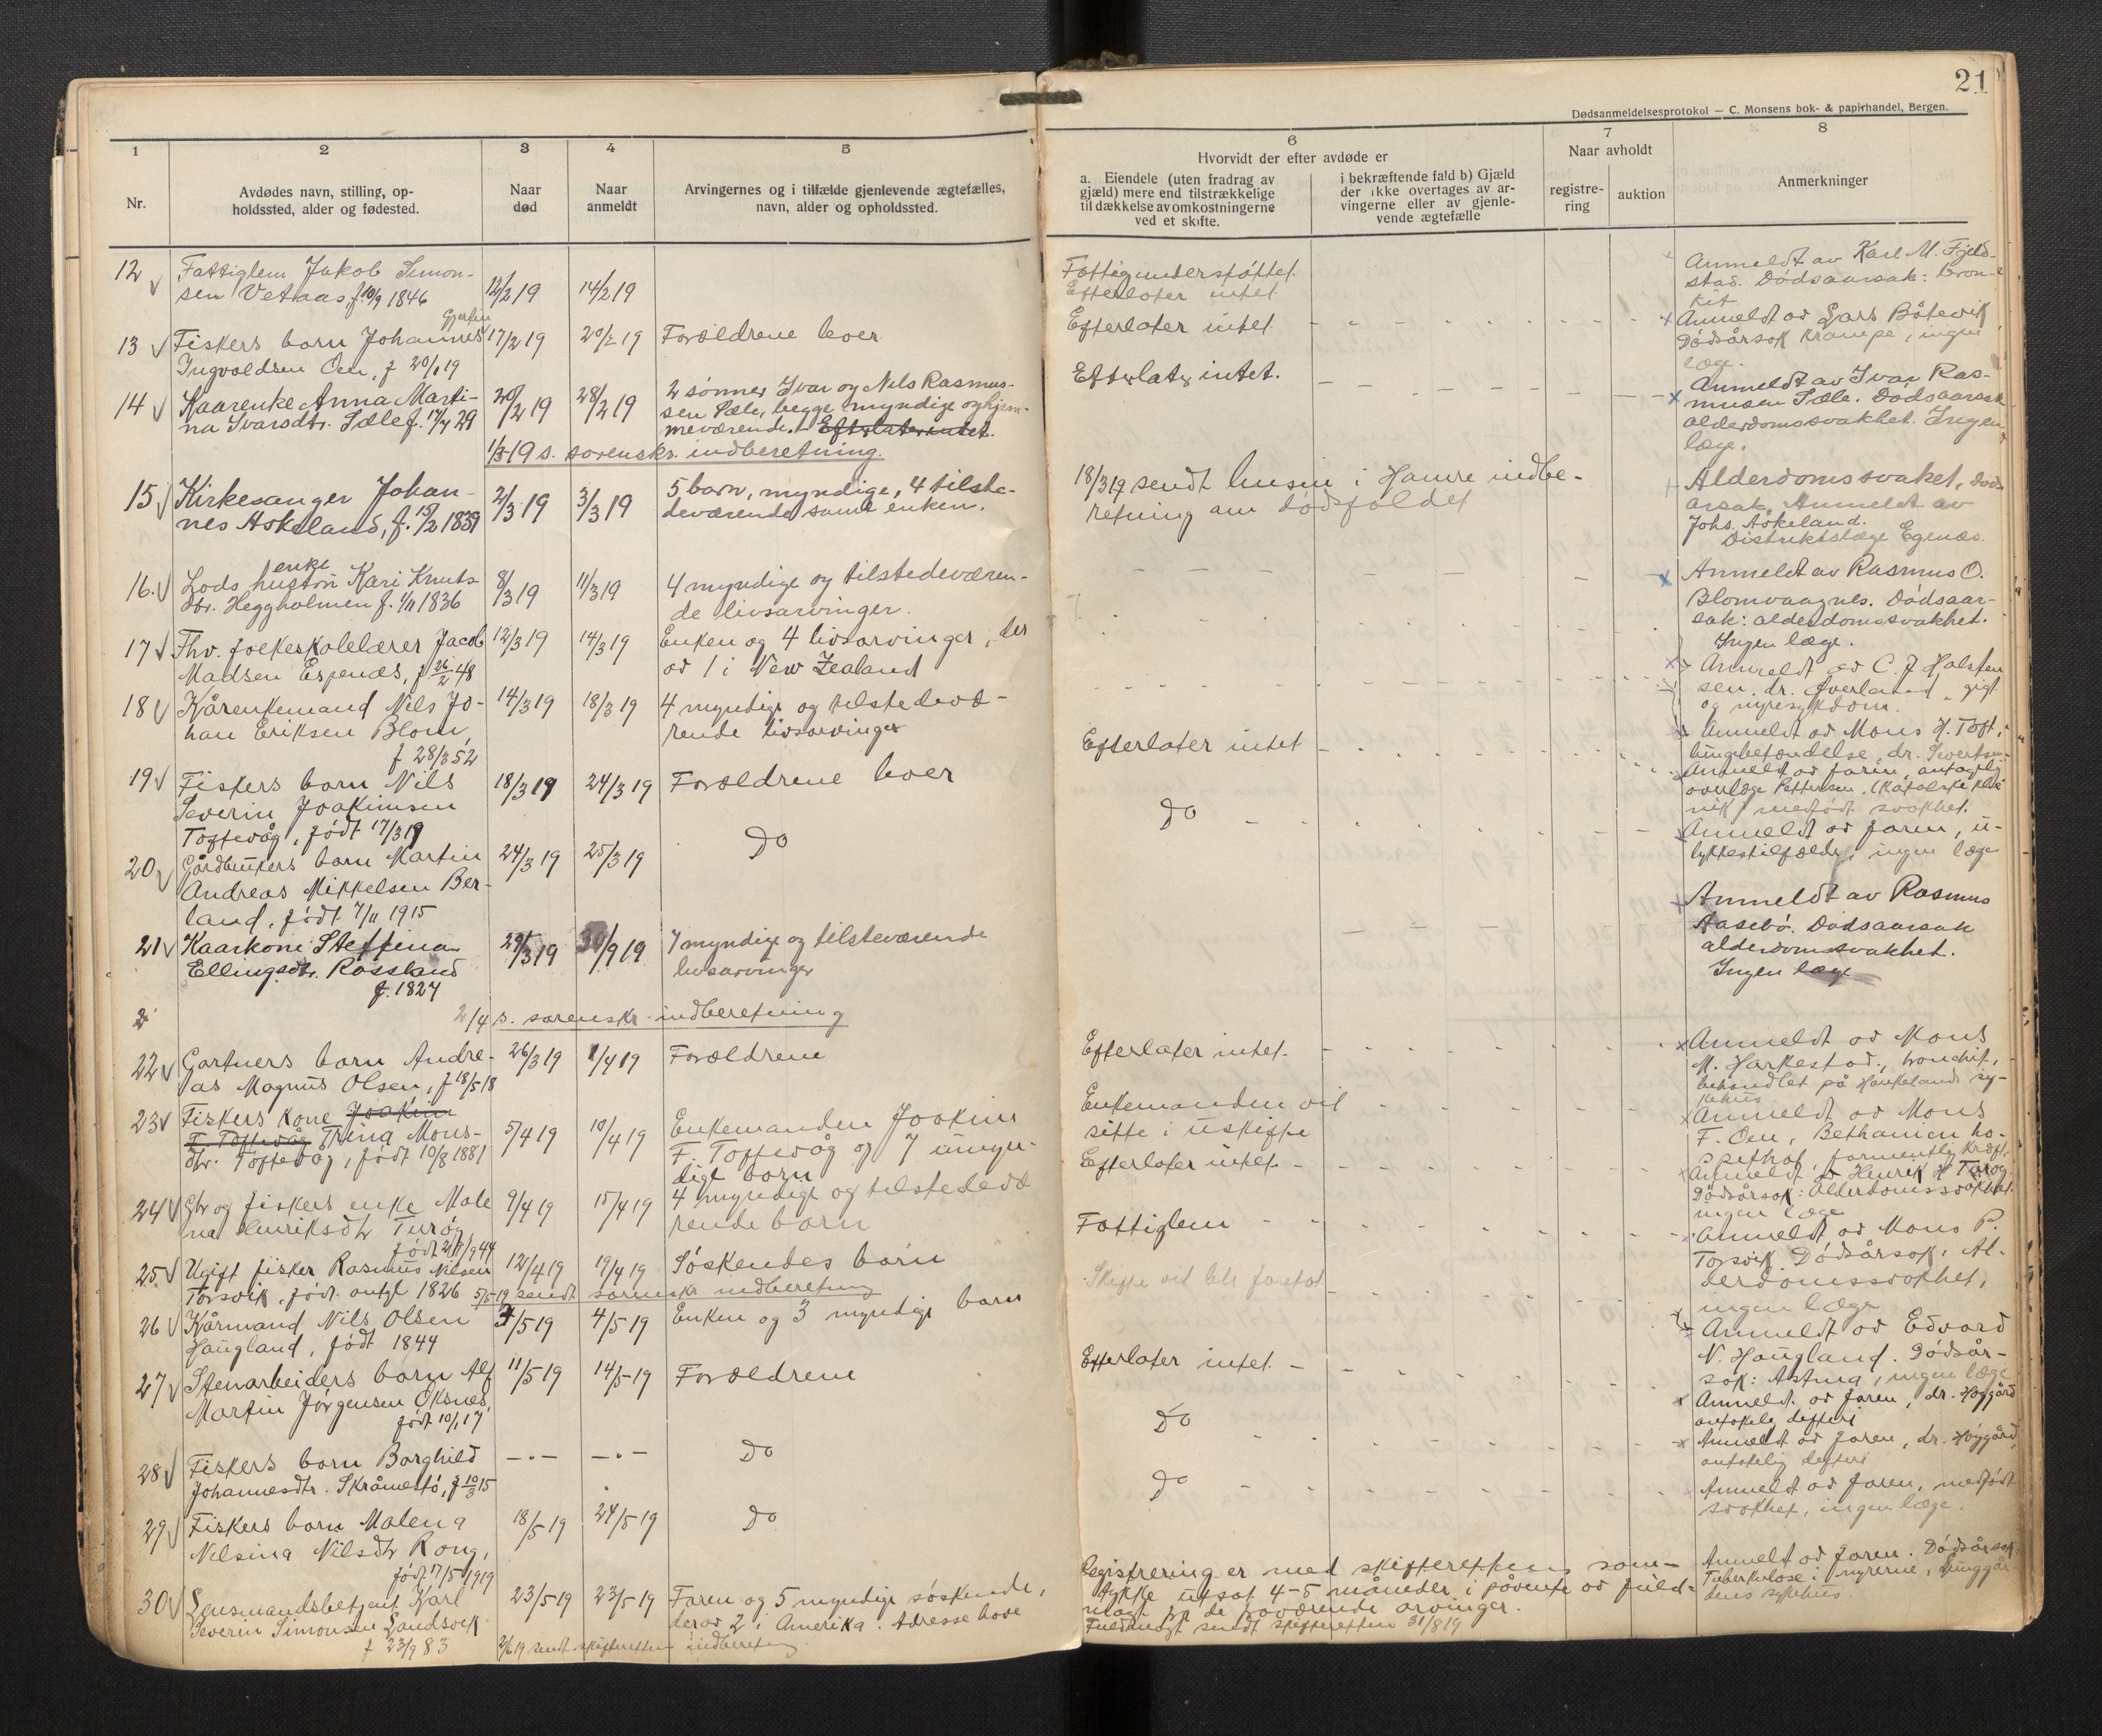 21
Dødsanmeldelsesprotokol — C. Monsens bok- & papirhandel, Bergen.
1
2
3
4
5
6
7
8
Nr.
Avdødes navn, stilling, op-
holdssted, alder og fødested.
Naar
død
Naar
anmeldt
Arvingernes og i tilfælde gjenlevende ægtefælles,
navn, alder og opholdssted.
Hvorvidt der efter avdøde er
a. Eiendele (uten fradrag av
gjæld) mere end tilstrækkelige
til dækkelse av omkostningerne
ved et skifte.
i bekræftende fald b) Gjæld
der ikke overtages av ar-
vingerne eller av gjenle-
vende ægtefælle
Naar avholdt
registre-
ring
auktion
Anmerkninger
12
Fattiglem Jakob Simon-
sen Vetaas, f. 10/9 1846
12/2 19
14/2 19
Fattigunderstøttet.
Efterlater intet.
Anmeldt av Karl M. Fjeld-
stad. Dødsaarsak: bron-
kit
13
Gjertin
Fiskers barn Johannes
Ingvoldsen Oen, f 20/1 19
17/2 19
20/2 19
Forældrene lever
Efterlater intet
Anmeldt av Lars Båtevik
Dødsårsak krampe, ingen
læge.
14
Kaarenke Anna Marti-
na Ivarsdtr. Sæle f. 17/4 29
20/2 19
28/2 19
2 sønner Ivar og Nils Rasmus-
sen Sæle, begge myndige og hjem-
meværende. Efterlater intet.
Efterlater intet.
Anmeldt av Ivar Ras-
musen Sæle. Dødsaarsak
alderdomssvakhet. Ingen
læge.
1/3 19 s. sorenskr. indberetning.
15
Kirkesanger Johan-
nes Askeland, f. 15/2 1839
2/3 19
3/3 19
5 barn, myndige, 4 tilste-
deværende samt enken.
18/3 19 sendt lensm i Hamre indbe-
retning om dødsfaldet
Alderdomssvaket, døds
arsak. Anmeldt av
Johs. Askeland.
Distriktslæge Egenæs.
16.
enke
Lods hustru Kari Knuts-
dtr. Heggholmen f. 1/11 1836
8/3 19
11/3 19
4 myndige og tilstedeværen-
de livsarvinger.
Anmeldt av Rasmus O.
Blomvaagnes. Dødsaar-
sak: alderdomssvakhet.
Ingen læge.
17
Fhv. folkeskolelærer Jacob
Madsen Espenæs, f 26/2 48
12/3 19
14/3 19
Enken og 4 livsarvinger, der
av 1 i New Zealand
Anmeldt av C. J Halsten
sen, dr. Øverland, gigt
og nyresykdom.
18
Kårenkemand Nils Jo-
han Eriksen Blom,
f 28/3 52
14/3 19
18/3 19
4 myndige og tilstedevæ-
rende livsarvinger
Efterlater intet
Anmeldt av Mons H. Toft,
lungebetændelse, dr. Sivertsen
19
Fiskers barn Nils
Severin Joakimsen
Toftevåg, født 17/3 19
18/3 19
24/3 19
Forældrene lever
Do
Anmeldt av faren, antagelig
overlæge Pettersen. (Katolske klin
nik) medfødt svakhet.
20
Gårdbrukers barn Martin
Andreas Mikkelsen Ber-
land, født 7/11 1915
24/3 19
25/3 19
Do
Anmeldt av faren, u-
lykkestilfælde, ingen læge
21
Kaarkone Steffina
Ellingsdtr. Rossland
f. 1827
29/3 19
30/9 19
7 myndige og tilsteværende
livsarvinger
Anmeldt av Rasmus
Aasebø. Dødsaarsak
alderdomssvakhet.
Ingen læge
2
2/4 s. sorenskr. indberetning
22
Gartners barn Andre-
as Magnus Olsen, f 18/5 18
26/3 19
1/4 19
Forældrene
Efterlater intet.
Anmeldt av Mons
M. Harkestad, bronchit,
behandlet på Haukeland sy-
kehus
23
Fiskers kone Joakim
F. Toftevåg Trina Mons-
dtr. Toftevåg, født 10/8 1881
5/4 19
10/4 19
Enkemanden Joakim
F. Toftevåg og 7 umyn-
dige barn
Enkemanden vil
sitte i uskifte
Anmeldt av Mons
F. Oen, Bethanien ho-
spithal, formentlig kræft.
24
Gbr og fiskers enke Male
na Henriksdtr Turøy,
født 21/9 44
9/4 19
15/4 19
4 myndige og tilstedevæ
rende barn
Efterlater intet
Anmeldt av Henrik H Turøy.
Dødsårsak: Alderdomssvakhet.
ingen læge
25.
Ugift fisker Rasmus Nilsen
Torsvik, født antgl 1826
12/4 19
19/4 19
Søskendes barn
Fattiglem
Anmeldt av Mons P.
Torsvik. Dødsårsak: Al-
derdomssvakhet,
ingen læge
5/5 19 sendt sorenskr indberetning
26
Kårmand Nils Olsen
Haugland, født 1844
3/5 19
4/5 19
Enken og 3 myndige barn
Skifte vil bli foretat
Anmeldt av Edvard
N. Haugland. Dødsår-
sak: Astma, ingen læge
27
Stenarbeiders barn Alf
Martin Jørgensen Oksnes,
født 10/1 17
11/5 19
14/5 19
Forældrene
Efterlater intet
Anmeldt av faren, dr. Høygård
antakelig difteri
28
Fiskers barn Borghild
Johannesdtr. Skråmestø, f 10/3 15
— . —
— . —
Do
Do
Anmeldt av faren, dr. Høygård,
antakelig difteri
29
Fiskers barn Malena
Nilsina Nilsdtr Rong,
født 17/5 1919
18/5 19
24/5 19
Do
Do
Anmeldt av faren, medfødt
svakhet, ingen læge.
30
Lensmandsbetjent Karl
Severin Simonsen Landsvik
f 23/9 83
23/5 19
23/5 19
Faren og 5 myndige søskende,
derav 2 i Amerika. Adresse have
2/6 19 sendt skifteretten indberetning
Registrering er med skifterettens sam-
tykke utsat 4-5 måneder i påvente av fuld-
magt fra de fraværende arvinger.
Fuldmagt sendt skifteretten 31/8 19
Anmeldt av faren. Dødsårsak:
Tuberkulose i nyrerne, Lunggår-
dens sykehus.